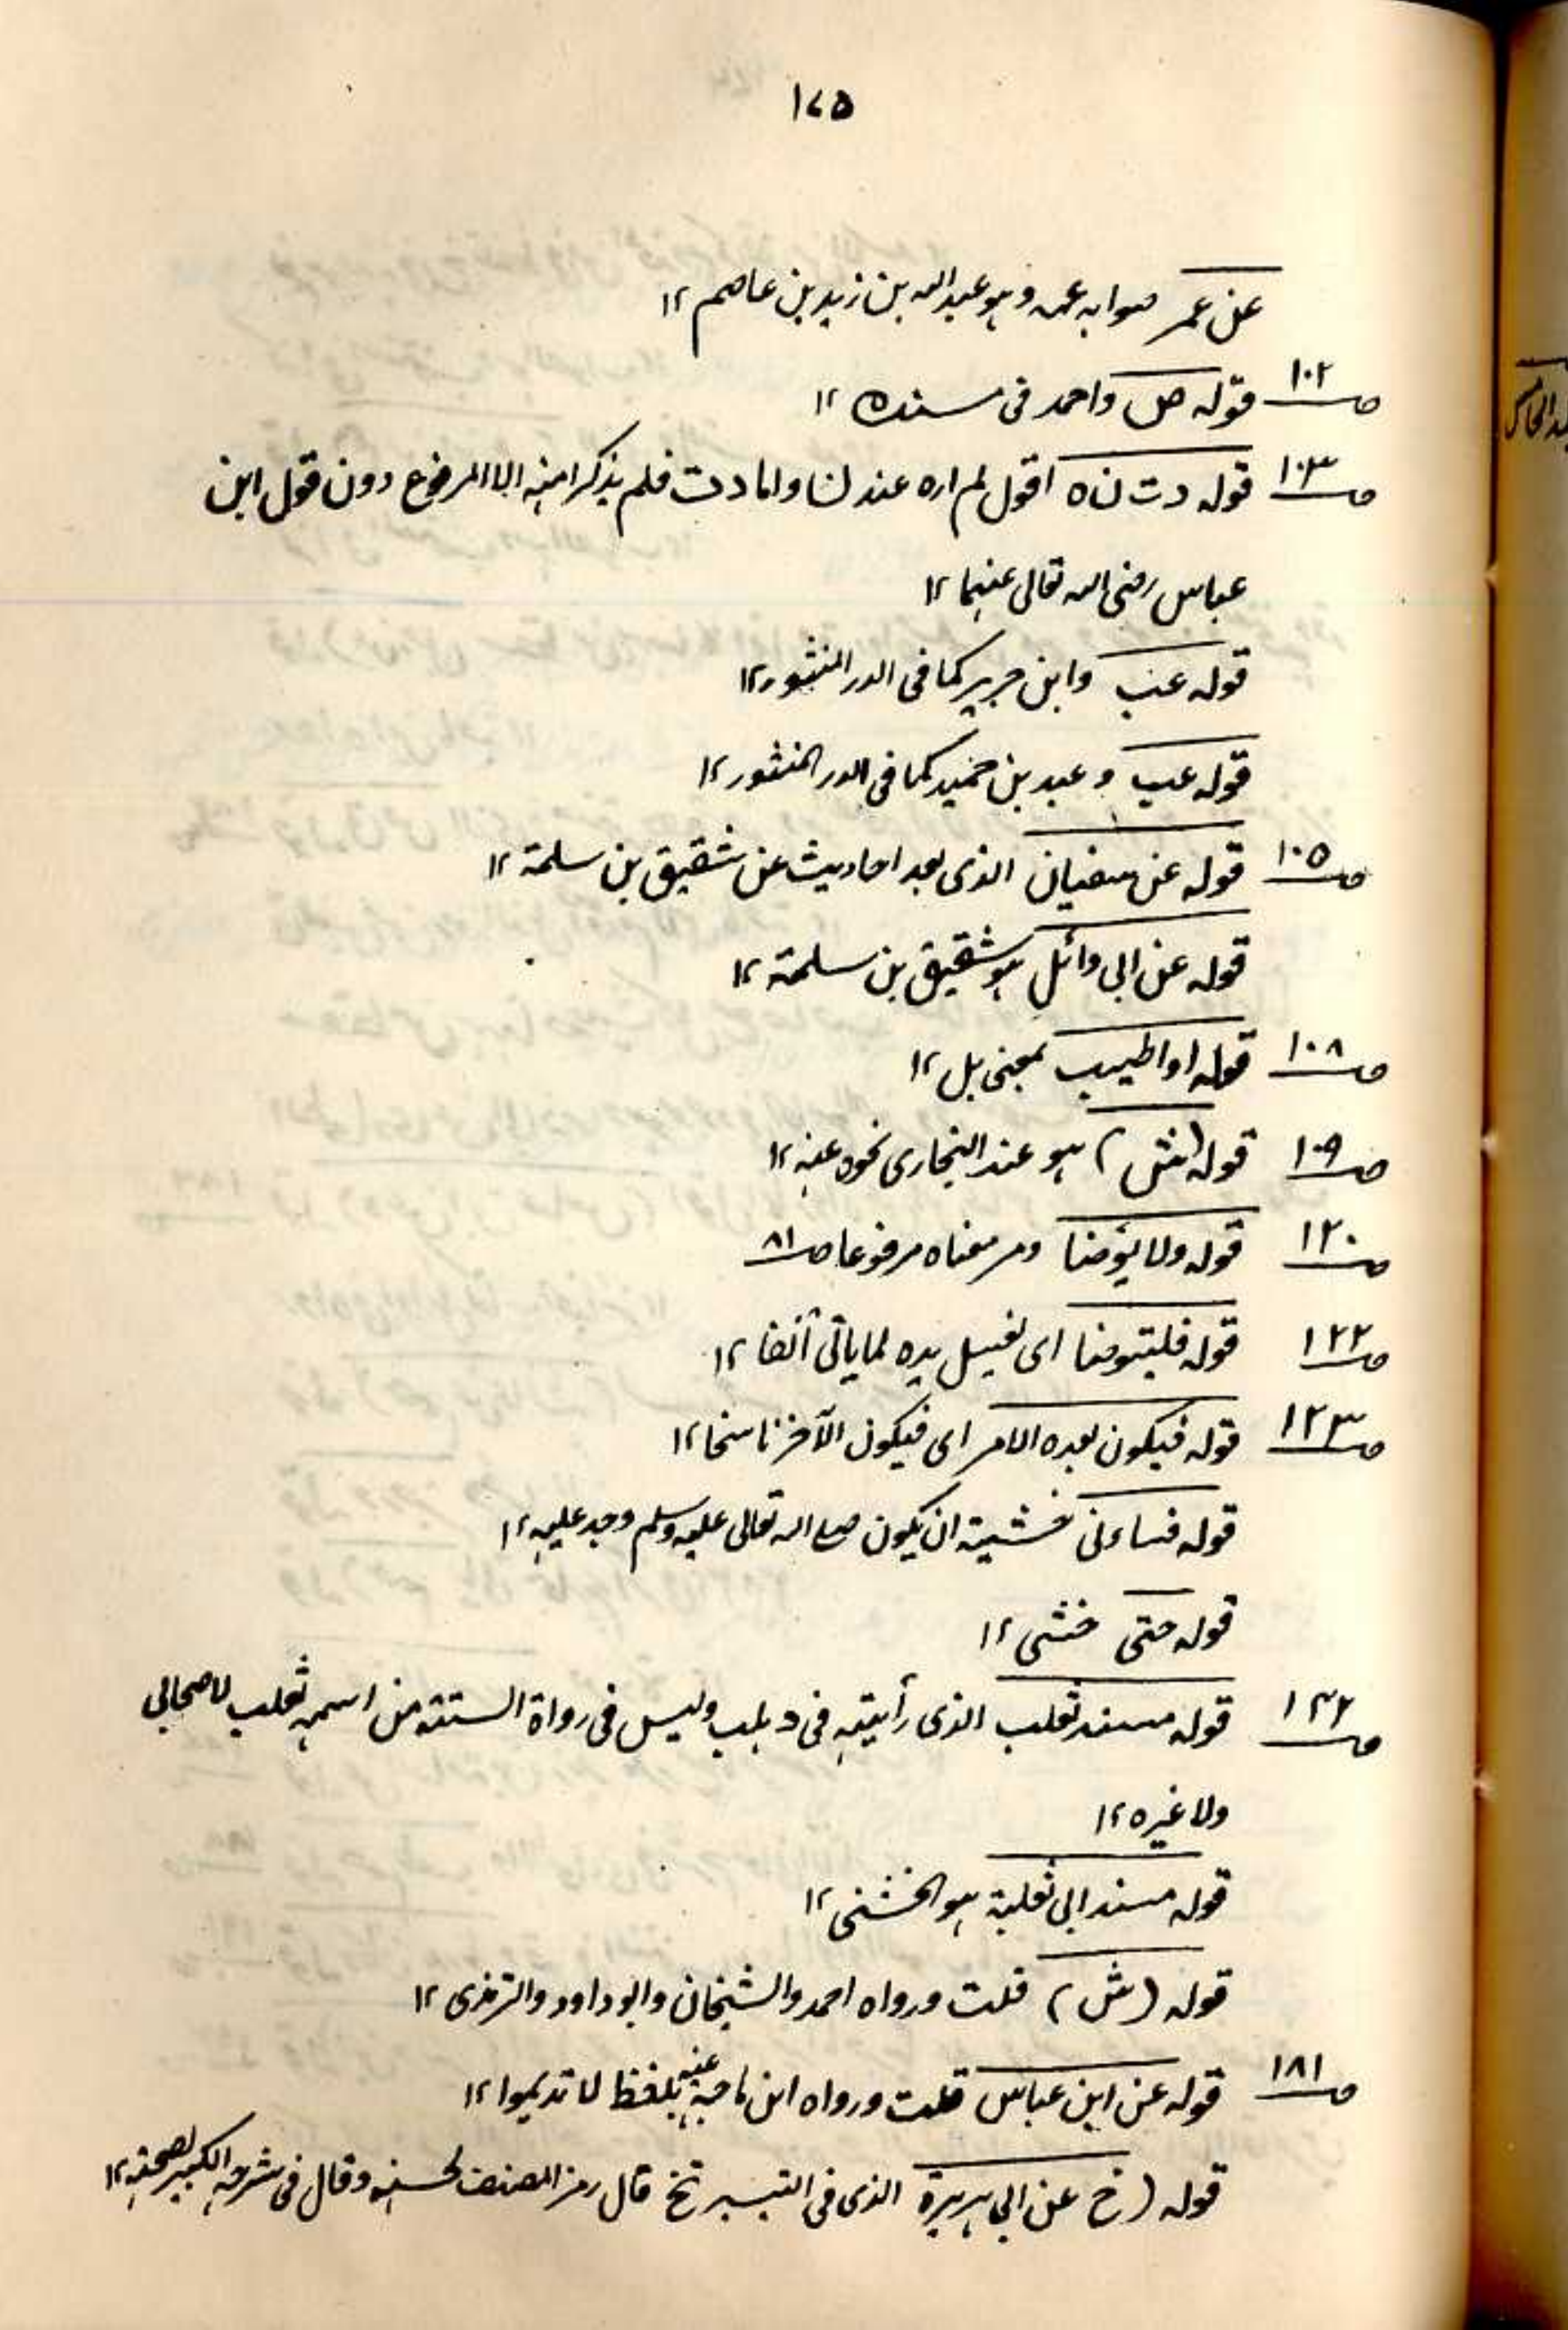 ۱۷۵
عن عمر صوابه عمه وهو عبد الله بن زيد بن عاصم ۱۲
صـ۱۰۲ قوله ص واحمد فى مسنده ۱۲
صـ۱۰۳ قوله د ت ن ه اقول لم اره عند ن و اما د ت فلم يذكرا منه الا المرفوع دون قول ابن
عباس رضى الله تعالى عنهما ۱۲
قوله عب وابن جرير كما فى الدر المنثور ۱۲
قوله عب وعبد بن حميد كما فى الدر المنثور ۱۲
صـ۱۰۵ قوله عن سفيان الذى بعد احاديث عن شقيق بن سلمة ۱۲
قوله عن ابى وائل هو شقيق بن سلمة ۱۲
صـ۱۰۸ قوله او اطيب بمعنى بل ۱۲
صـ۱۰۹ قوله (ش) هو عند البخارى نحوه عنه ۱۲
صـ۱۲۰ قوله ولا يؤضا ومر معناه مرفوعا صـ۸۱
صـ۱۲۲ قوله فليتوضا اى لغسل يده لما ياتى آنفا ۱۲
صـ۱۲۳ قوله فيكون بعده الامر اى فيكون الآخر ناسخا ۱۲
قوله فساءنى خشية ان يكون صلى الله تعالى عليه وسلم وجد عليه ۱۲
قوله حتى خشى ۱۲
صـ۱۴۲ قوله مسند ثعلب الذى رأيته فى د هلب وليس فى رواة الستة من اسمه ثعلب لا صحابى
ولا غيره ۱۲
قوله مسند ابى ثعلبة هو الخشنى ۱۲
قوله (ش) قلت ورواه احمد والشيخان وابو داود والترمذى ۱۲
صـ۱۸۱ قوله عن ابن عباس قلت ورواه ابن ماجة عنه بلفظ لا تديموا ۱۲
قوله (خ عن ابى هريرة الذى فى التيسير تخ قال رمز المصنف لحسنه وقال فى شرحه الكبير لصحته ۱۲